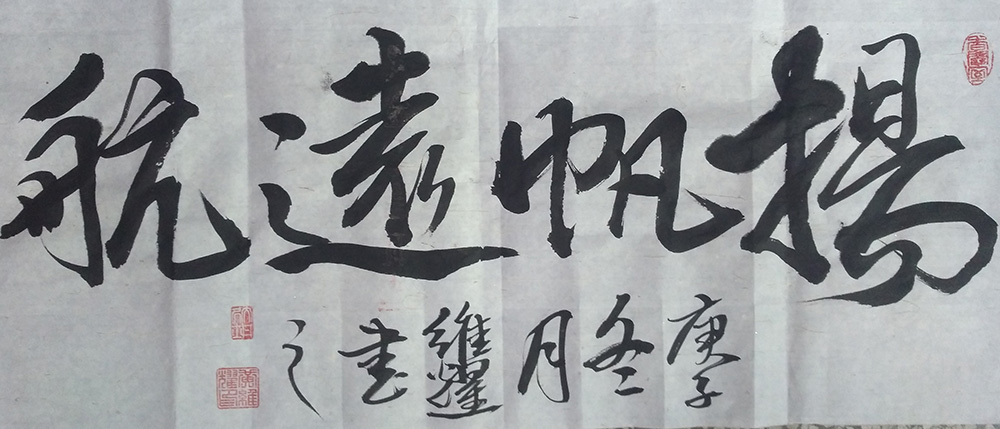 揚帆遠航
庚子冬月維耀書之